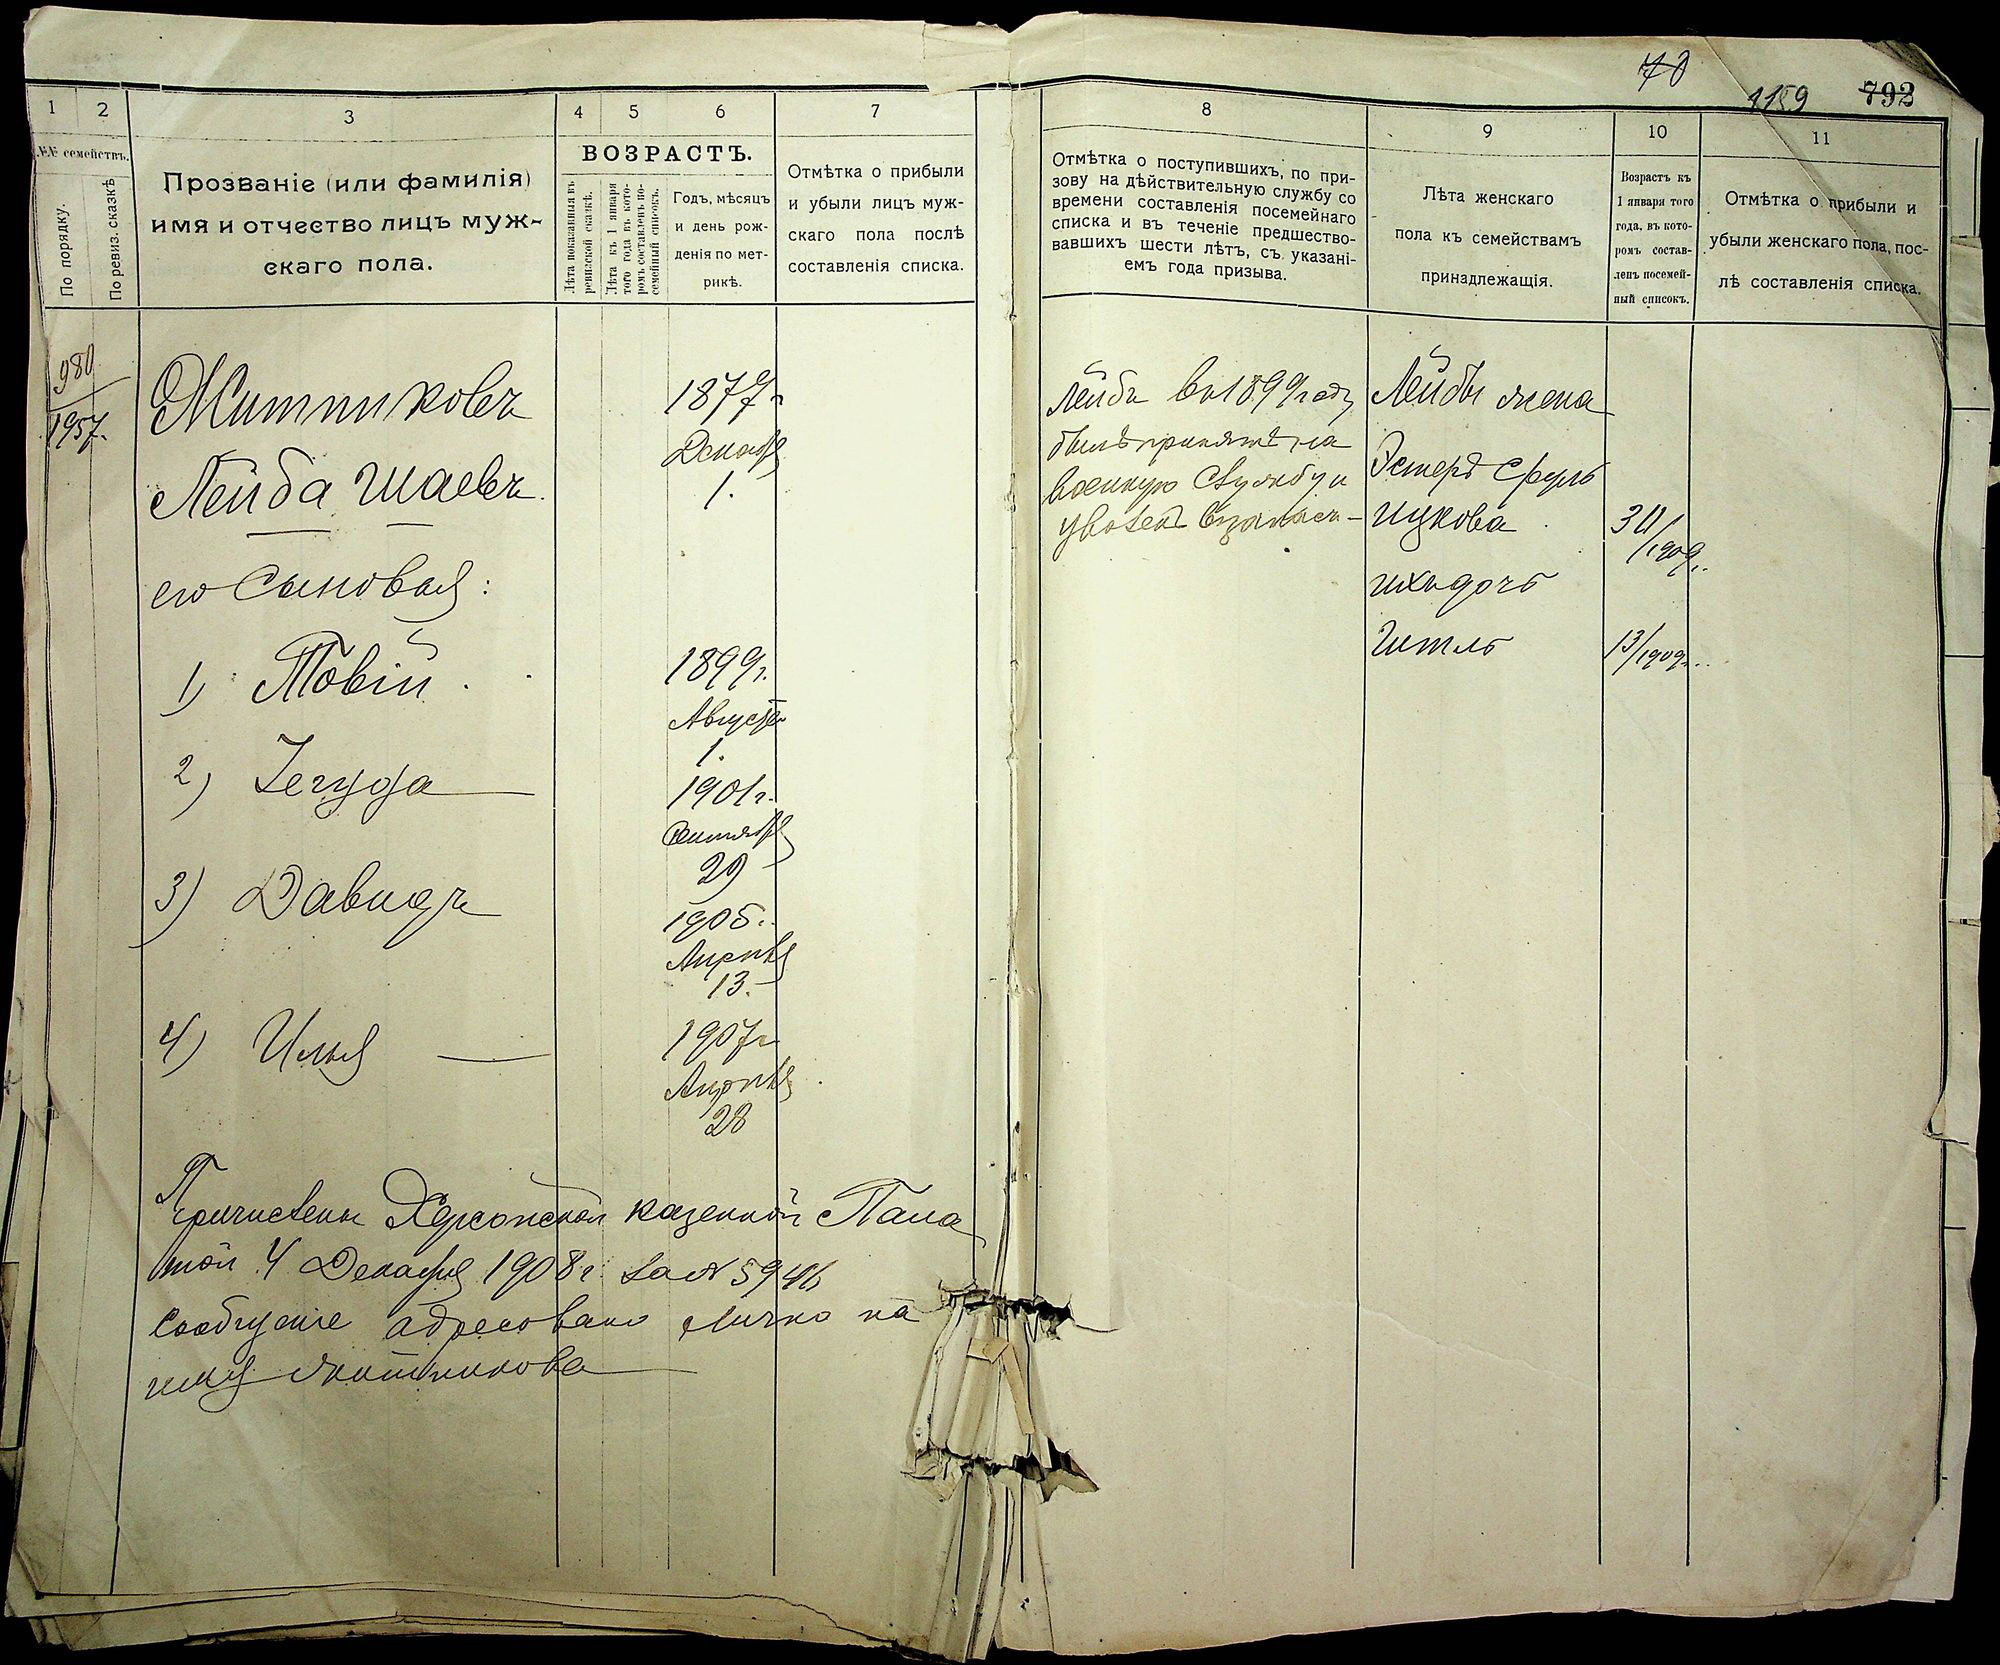 70
1159 792
1
2
3
4
5
6
7
№№ семействъ.
По порядку.
По ревиз. сказкѣ
Прозваніе (или фамилія)
имя и отчество лицъ муж-
скаго пола.
ВОЗРАСТЪ.
Лѣта показанныя въ
ревизской сказкѣ.
Лѣта къ 1 января
того года въ кото-
ромъ составленъ по-
семейный списокъ.
Годъ, мѣсяцъ
и день рож-
денія по мет-
рикѣ.
Отмѣтка о прибыли
и убыли лицъ муж-
скаго пола послѣ
составленія списка.
980
1957.
Житниковъ
Лейба Шаевъ
его сыновья:
1) Товій
2) Іегуда
3) Давидъ
4) Илья
1877 г
Декабря
1.
1899 г.
Августа
1.
1901 г.
Сентября
29
1905 г.
Апрѣля
13.
1907 г
Апрѣля
28
Причислены Херсонской казенной Пала
той 4 Декабря 1908 г. за № 5946
сообщеніе адресовано лично на
имя Житникова
8
9
10
11
Отмѣтка о поступившихъ, по при-
зову на дѣйствительную службу со
времени составленія посемейнаго
списка и въ теченіе предшество-
вавшихъ шести лѣтъ, съ указані-
емъ года призыва.
Лѣта женскаго
пола къ семействамъ
принадлежащія.
Возрастъ къ
1 января того
года, въ кото-
ромъ состав-
ленъ посемей-
ный списокъ.
Отмѣтка о прибыли и
убыли женскаго пола, пос-
лѣ составленія списка.
Лейба въ 1899 году
былъ принятъ на
военную службу и
уволенъ въ запасъ
Лейбы жена
Эстеръ Фруль
Ицкова
ихъ дочь
Гитль
34/1909 г.
13/1909 г.